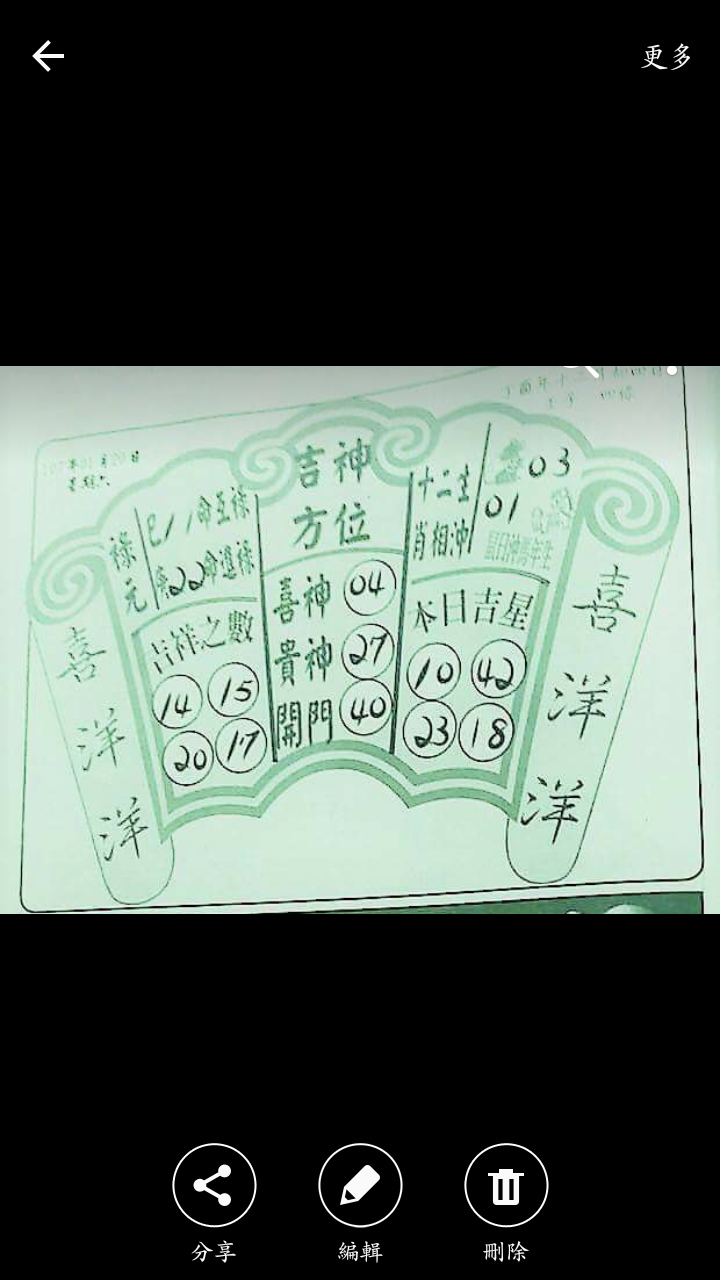 更多
107年01月20日
星期六
喜洋洋
祿元
巳11命互祿
22命進祿
吉祥之數
14 15
20 17
吉神方位
喜神 04
貴神 27
開門 40
十二生肖相沖
03
01
鼠日沖馬年生
本日吉星
10 42
23 18
喜洋洋
分享 編輯 刪除